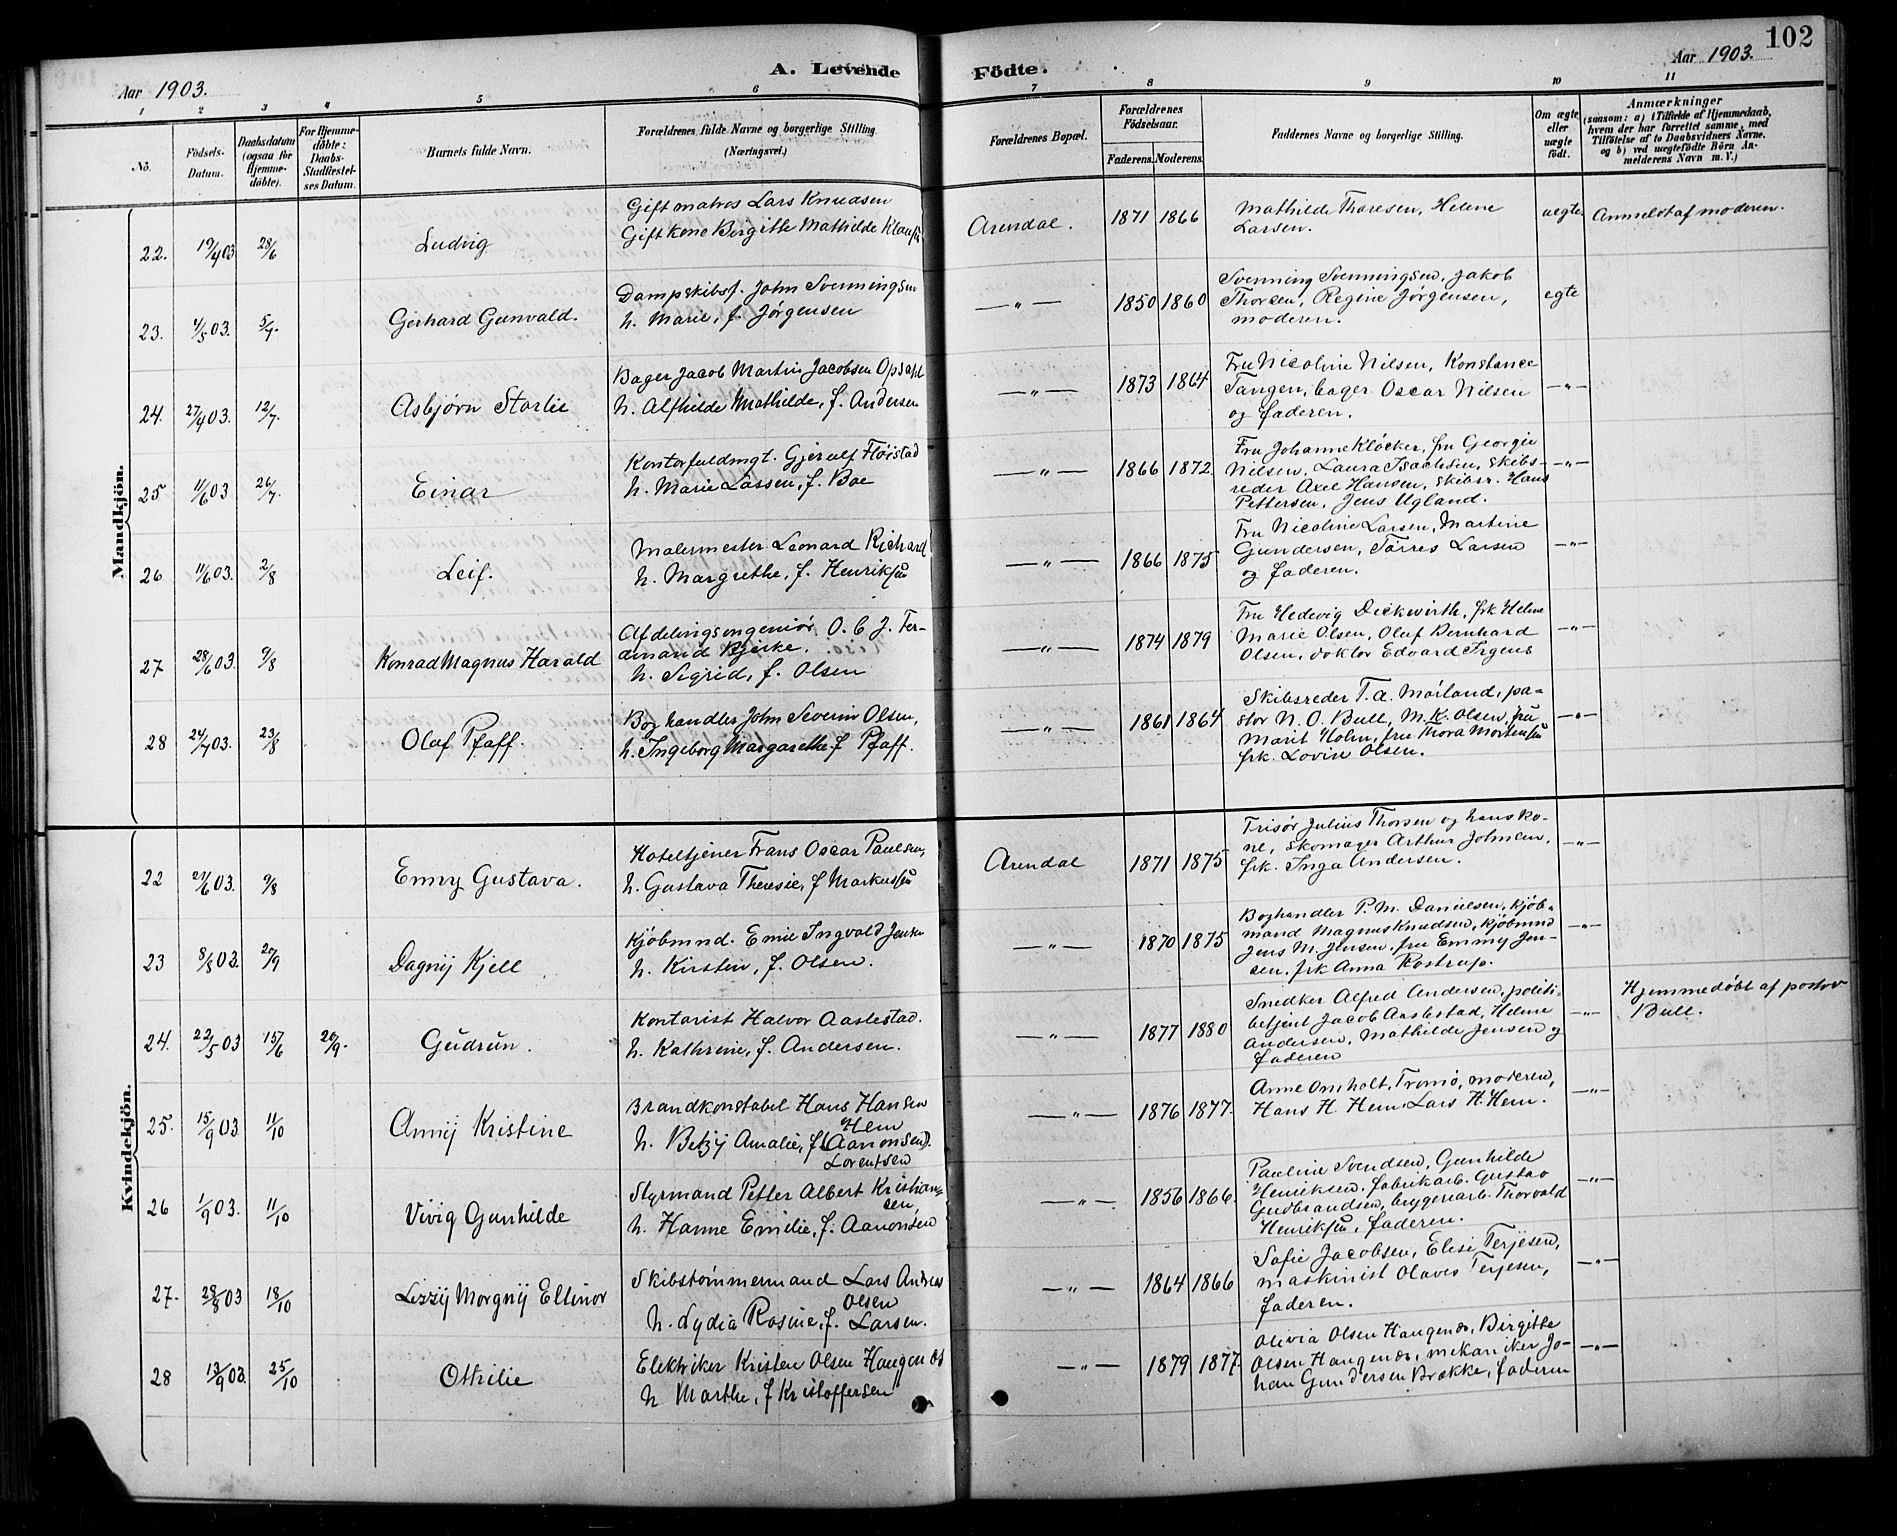 102
Aar 1903.
A. Levende Födte.
Aar 1903.
1 2 3 4 5 6 7 8 9 10 11
No.
Födsels-Datum.
Daabsdatum (ogsaa for Hjemme-döbte).
For Hjemme-döbte: Daabs-Stadfæstel-ses Datum.
Barnets fulde Navn.
Forældrenes fulde Navne og borgerlige Stilling. (Næringsvei.)
Forældrenes Bopæl.
Forældrenes Födselsaar.
Faderens. Moderens.
Faddernes Navne og borgerlige Stilling.
Om ægte eller uægte födt.
Anmærkninger
(saasom: a) i Tilfælde af Hjemmedaab, hvem der har forrettet samme, med Tilföielse af to Daabsvidners Navne. og b) ved uægtefödte Börn An-melderens Navn m. V.)
Mandkjön.
22. 19/4 03 28/6 Ludvig
Gift matros Lars Knudsen
Gift kone Birgitte Mathilde
Arendal. 1871 1866
Mathilde Tharesen, Helene
Larsen.
uegte Anmeldt af moderen.
23. 4/5 03. 5/7. Gerhard Gunvald.
Dampskibsf. John Svenningsen
h. Marie, f. Jørgensen
—"— 1850 1860
Svenning Svenningsen, Jakob
Thorsen, Regine Jørgensen,
moderen.
egte
24. 27/4 03. 12/7. Asbjørn Storlie
Bager Jacob Martin Jacobsen Opsahl
h. Alfhilde Mathilde, f. Andersen
—"— 1873 1864
Fru Nicoline Nilsen, Konstance
Tangen, bager Oscar Nilsen
og faderen.
—"—
25 11/6 03 26/7. Einar
Kontorfuldmgt. Gjerulf Fløistad
h. Marie Lassen, f. Boe
—"— 1866 1872.
Fru Johanne Kløcker, fru Georgie
Nilsen, Laura Isachsen, skibs-
reder Axel Hansen, skibsr. Hans
Pettersen, Jens Ugland.
—"—
26 11/6 03. 2/8 Leif.
Malermester Leonard Richard
h. Margrethe, f. Henriksen
—"— 1866 1875
Fru Nicoline Larsen, Martine
Gundersen, Tørres Larsen
og faderen.
—"—
27 28/6 03. 9/8 Konrad Magnus Harald
Afdelingsingeniør O. C. J. Fer-
dinand Bjerke.
h. Sigrid, f. Olsen
—"— 1874 1879
Fru Hedevig Dickwirth, frk Helene
Marie Olsen, Oluf Bernhard
Olsen, doktor Edvard Irgens
—"—
28 24/4 03. 23/8 Olaf Pfaff.
Boghandler John Severin Olsen,
h. Ingeborg Margarethe f Pfaff.
—"— 1861 1864
Skibsreder T. A. Møiland, pa-
stor N. O. Bull, M. K. Olsen, fru
Marit Holm, fru Thora Mortensen
frk. Lovise Olsen.
—"—
Kvindekjön.
22 21/6 03. 9/8 Emmy Gustava.
Hoteltjener Frans Oscar Paulsen,
h. Gustava Theresie, f Markussen
Arendal 1871 1875
Frisør Julius Thorsen og hans ko-
ne, skomager Arthur Johnsen,
frk. Inga Andersen.
—"—
23 8/8 03. 20/9 Dagny Kjell
Kjöbmnd. Emil Ingvald Jensen
h. Kirsten, f. Olsen.
—"— 1870 1875
Boghandler P. M. Danielsen, kjöb-
mand Magnus Knudsen, kjöbmnd
Jens M. Jensen, fru Emmy Jen-
sen, frk Anna Rostrup.
—"—
24. 22/5 03 15/6 20/9. Gudrun.
Kontorist Halvor Aaslestad.
h. Kathrine, f. Andersen.
—"— 1877 1880
Snedker Alfred Andersen, politi-
betjent Jacob Aaslestad, Helene
Andersen, Mathilde Jensen og
faderen
—"— Hjemmedøbt af pastor
Bull.
25. 15/9 03 11/10 Anny Kristine
Brandkonstabel Hans Hansen
Hem
h. Betzy Amalie, f. (Aanonsen).
Lorentsen
—"— 1876 1877.
Anne Omholt, Tromø, moderen,
Hans H. Hem, Lars H. Hem.
—"—
26 1/9 03. 11/10 Vivig Gunhilde
Styrmand Petter Albert Kristian-
sen,
h. Hanne Emilie, f. Aanonsen
—"— 1856 1866.
Pauline Svendsen, Gunhilde
Henriksen, fabrikarb. Gustav
Gudbrandsen, bryggeriarb. Thorvald
Henriksen, faderen.
—"—
27. 28/8 03 18/10 Lizzy Morgny Ellinor
Skibstømmermand Lars Andreas
Olsen
h. Lydia Rosine, f. Larsen.
—"— 1864 1866
Sofie Jacobsen, Elise Terjesen,
maskinist Olaves Terjesen,
faderen.
—"—
28 13/9 03. 25/10 Othilie
Elektriker Kristen Olsen Haugenæs
h Marthe, f Kristoffersen
—"— 1879 1877.
Olivia Olsen Haugenæs, Birgitte
Olsen Haugenæs, mekaniker Jo-
han Gundersen Brække, faderen
—"—